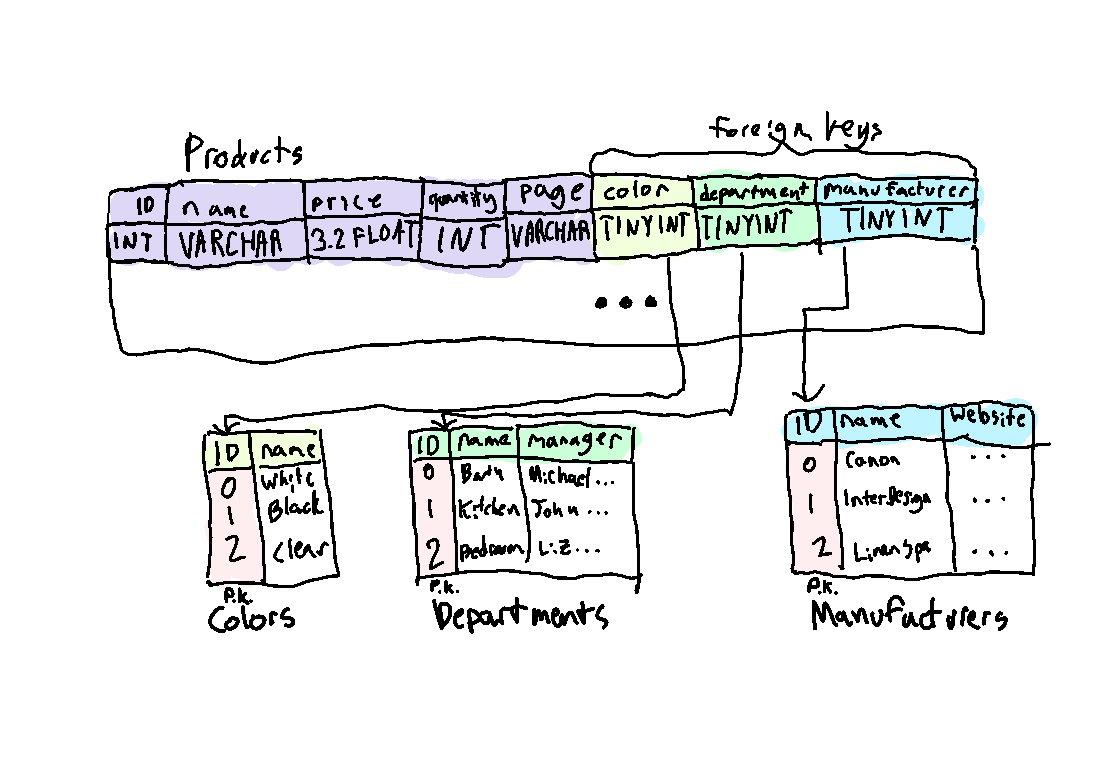 Foreign keys
Products
ID name price quantity page color department manufacturer
INT VARCHAR 3.2 FLOAT INT VARCHAR TINYINT TINYINT TINYINT
...
ID name
0 White
1 Black
2 Clear
P.K.
Colors
ID name manager
0 Bath Michael...
1 Kitchen John ...
2 Bedroom Liz...
P.K.
Departments
ID name website
0 Canon ...
1 InterDesign ...
2 LinenSpa ...
P.K.
Manufacturers